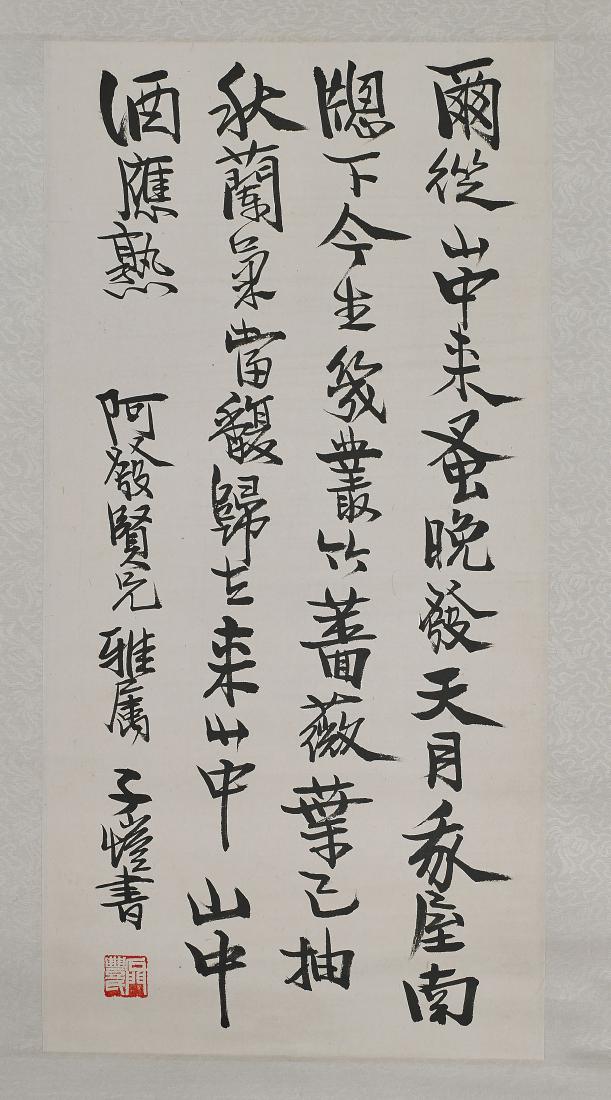 爾從山中来蚤晚發天目我屋南
牕下今生幾叢竹薔薇葉已抽
秋蘭氣當馥歸去来山中山中
酒應熟 阿發賢兄雅属 子愷書
石門豐氏